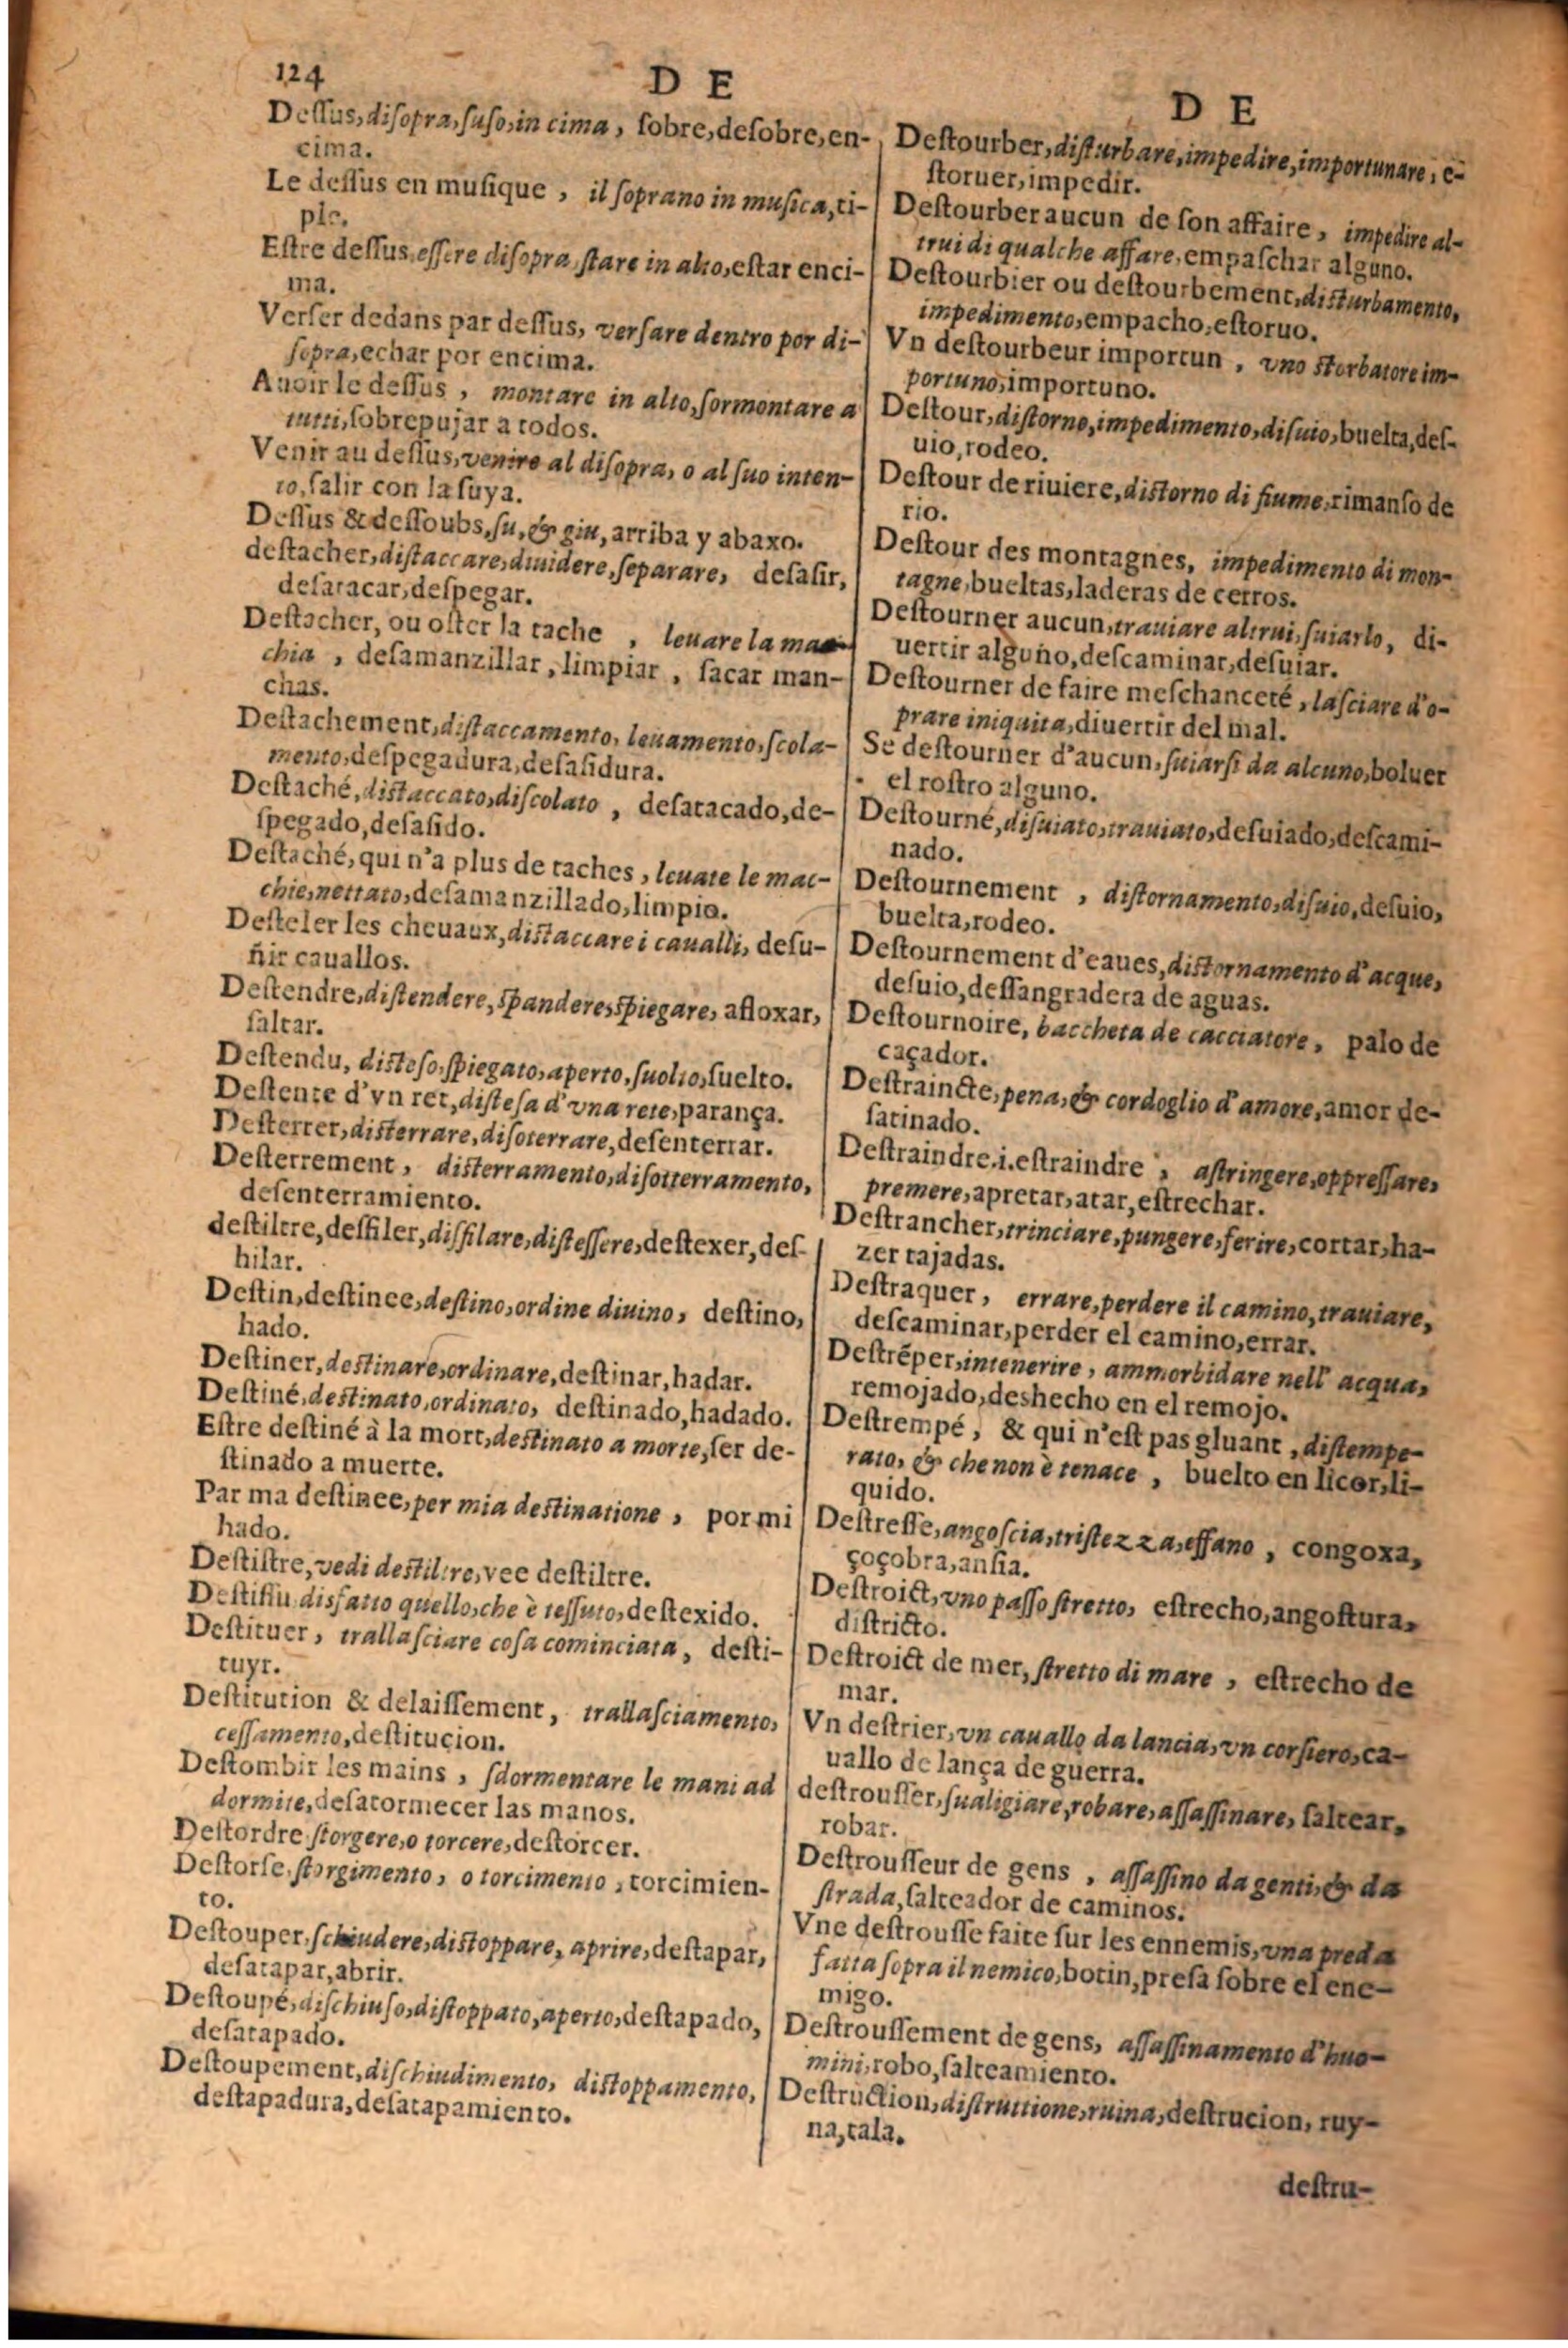 124
D E
Dessus, disopra, suso, in cima, sobre, desobre, en-
cima.
Le dessus en musique, il soprano in musica, ti-
ple.
Estre dessus, essere disopra, stare in alto, estar enci-
ma.
Verser dedans par dessus, versare dentro por di-
sopra, echar por encima.
Auoir le dessus, montare in alto, sormontare a
tutti, sobrepujar a todos.
Venir au dessus, venire al disopra, o al suo inten-
to, salir con la suya.
Dessus & dessoubs, su, & giu, arriba y abaxo.
destacher, distaccare, diuidere, separare, desasir,
desatacar, despegar.
Destacher, ou oster la tache, leuare la mac-
chia, desamanzillar, limpiar, sacar man-
chas.
Destachement, distaccamento, leuamento, scola-
mento, despegadura, desasidura.
Destaché, distaccato, discolato, desatacado, de-
spegado, desasido.
Destaché, qui n'a plus de taches, leuate le mac-
chie, nettato, desamanzillado, limpio.
Desteler les cheuaux, distaccare i caualli, desu-
ñir cauallos.
Destendre, distendere, spandere, spiegare, afloxar,
saltar.
Destendu, disteso, spiegato, aperto, suolto, suelto.
Destente d'vn ret, distesa d'vna rete, parança.
Desterrer, disterrare, disoterrare, desenterrar.
Desterrement, disterramento, disotterramento,
desenterramiento.
destiltre, desfiler, disfilare, distessere, destexer, des-
hilar.
Destin, destinee, destino, ordine diuino, destino,
hado.
Destiner, destinare, ordinare, destinar, hadar.
Destiné, destinato, ordinato, destinado, hadado.
Estre destiné à la mort, destinato a morte, ser de-
stinado a muerte.
Par ma destinee, per mia destinatione, por mi
hado.
Destistre, vedi destiltre, vee destiltre.
Destissu disfatto quello, che è tessuto, destexido.
Destituer, trallasciare cosa cominciata, desti-
tuyr.
Destitution & delaissement, trallasciamento,
cessamento, destitucion.
Destombir les mains, sdormentare le mani ad
dormite, desatormecer las manos.
Destordre storgere, o torcere, destorcer.
Destorse, storgimento, o torcimento, torcimien-
to.
Destouper, schiudere, distoppare, aprire, destapar,
desatapar, abrir.
Destoupé, dischiuso, distoppato, aperto, destapado,
desatapado.
Destoupement, dischiudimento, distoppamento,
destapadura, desatapamiento.
D E
Destourber, disturbare, impedire, importunare, ē-
storuer, impedir.
Destourber aucun de son affaire, impedire al-
trui di qualche affare, empaschar alguno.
Destourbier ou destourbement, disturbamento,
impedimento, empacho, estoruo.
Vn destourbeur importun, vno storbatore im-
portuno, importuno.
Destour, distorno, impedimento, disuio, buelta, des-
uio, rodeo.
Destour de riuiere, distorno di fiume, rimanso de
rio.
Destour des montagnes, impedimento di mon-
tagne, bueltas, laderas de cerros.
Destourner aucun, trauiare altrui, suiarlo, di-
uertir alguno, descaminar, desuiar.
Destourner de faire meschanceté, lasciare d'o-
prare iniquita, diuertir del mal.
Se destourner d'aucun, suiarsi da alcuno, boluer
el rostro alguno.
Destourné, disuiato, trauiato, desuiado, descami-
nado.
Destournement, distornamento, disuio, desuio,
buelta, rodeo.
Destournement d'eaues, distornamento d'acque,
desuio, dessangradera de aguas.
Destournoire, baccheta de cacciatore, palo de
caçador.
Destraincte, pena, & cordoglio d'amore, amor de-
satinado.
Destraindre. i. estraindre, astringere, oppressare,
premere, apretar, atar, estrechar.
Destrancher, trinciare, pungere, ferire, cortar, ha-
zer tajadas.
Destraquer, errare, perdere il camino, trauiare,
descaminar, perder el camino, errar.
Destrēper, intenerire, ammorbidare nell' acqua,
remojado, deshecho en el remojo.
Destrempé, & qui n'est pas gluant, distempe-
rato, & che non è tenace, buelto en licor, li-
quido.
Destresse, angoscia, tristezza, affano, congoxa,
çoçobra, ansia.
Destroict, vno passo stretto, estrecho, angostura,
districto.
Destroict de mer, stretto di mare, estrecho de
mar.
Vn destrier, vn cauallo da lancia, vn corsiero, ca-
uallo de lança de guerra.
destrousser, sualigiare, robare, assassinare, saltear,
robar.
Destrousseur de gens, assassino da genti, & da
strada, salteador de caminos.
Vne destrousse faite sur les ennemis, vna preda
fatta sopra il nemico, botin, presa sobre el ene-
migo.
Destroussement de gens, assassinamento d'huo-
mini, robo, salteamiento.
Destruction, distruttione, ruina, destrucion, ruy-
na, tala.
destru-